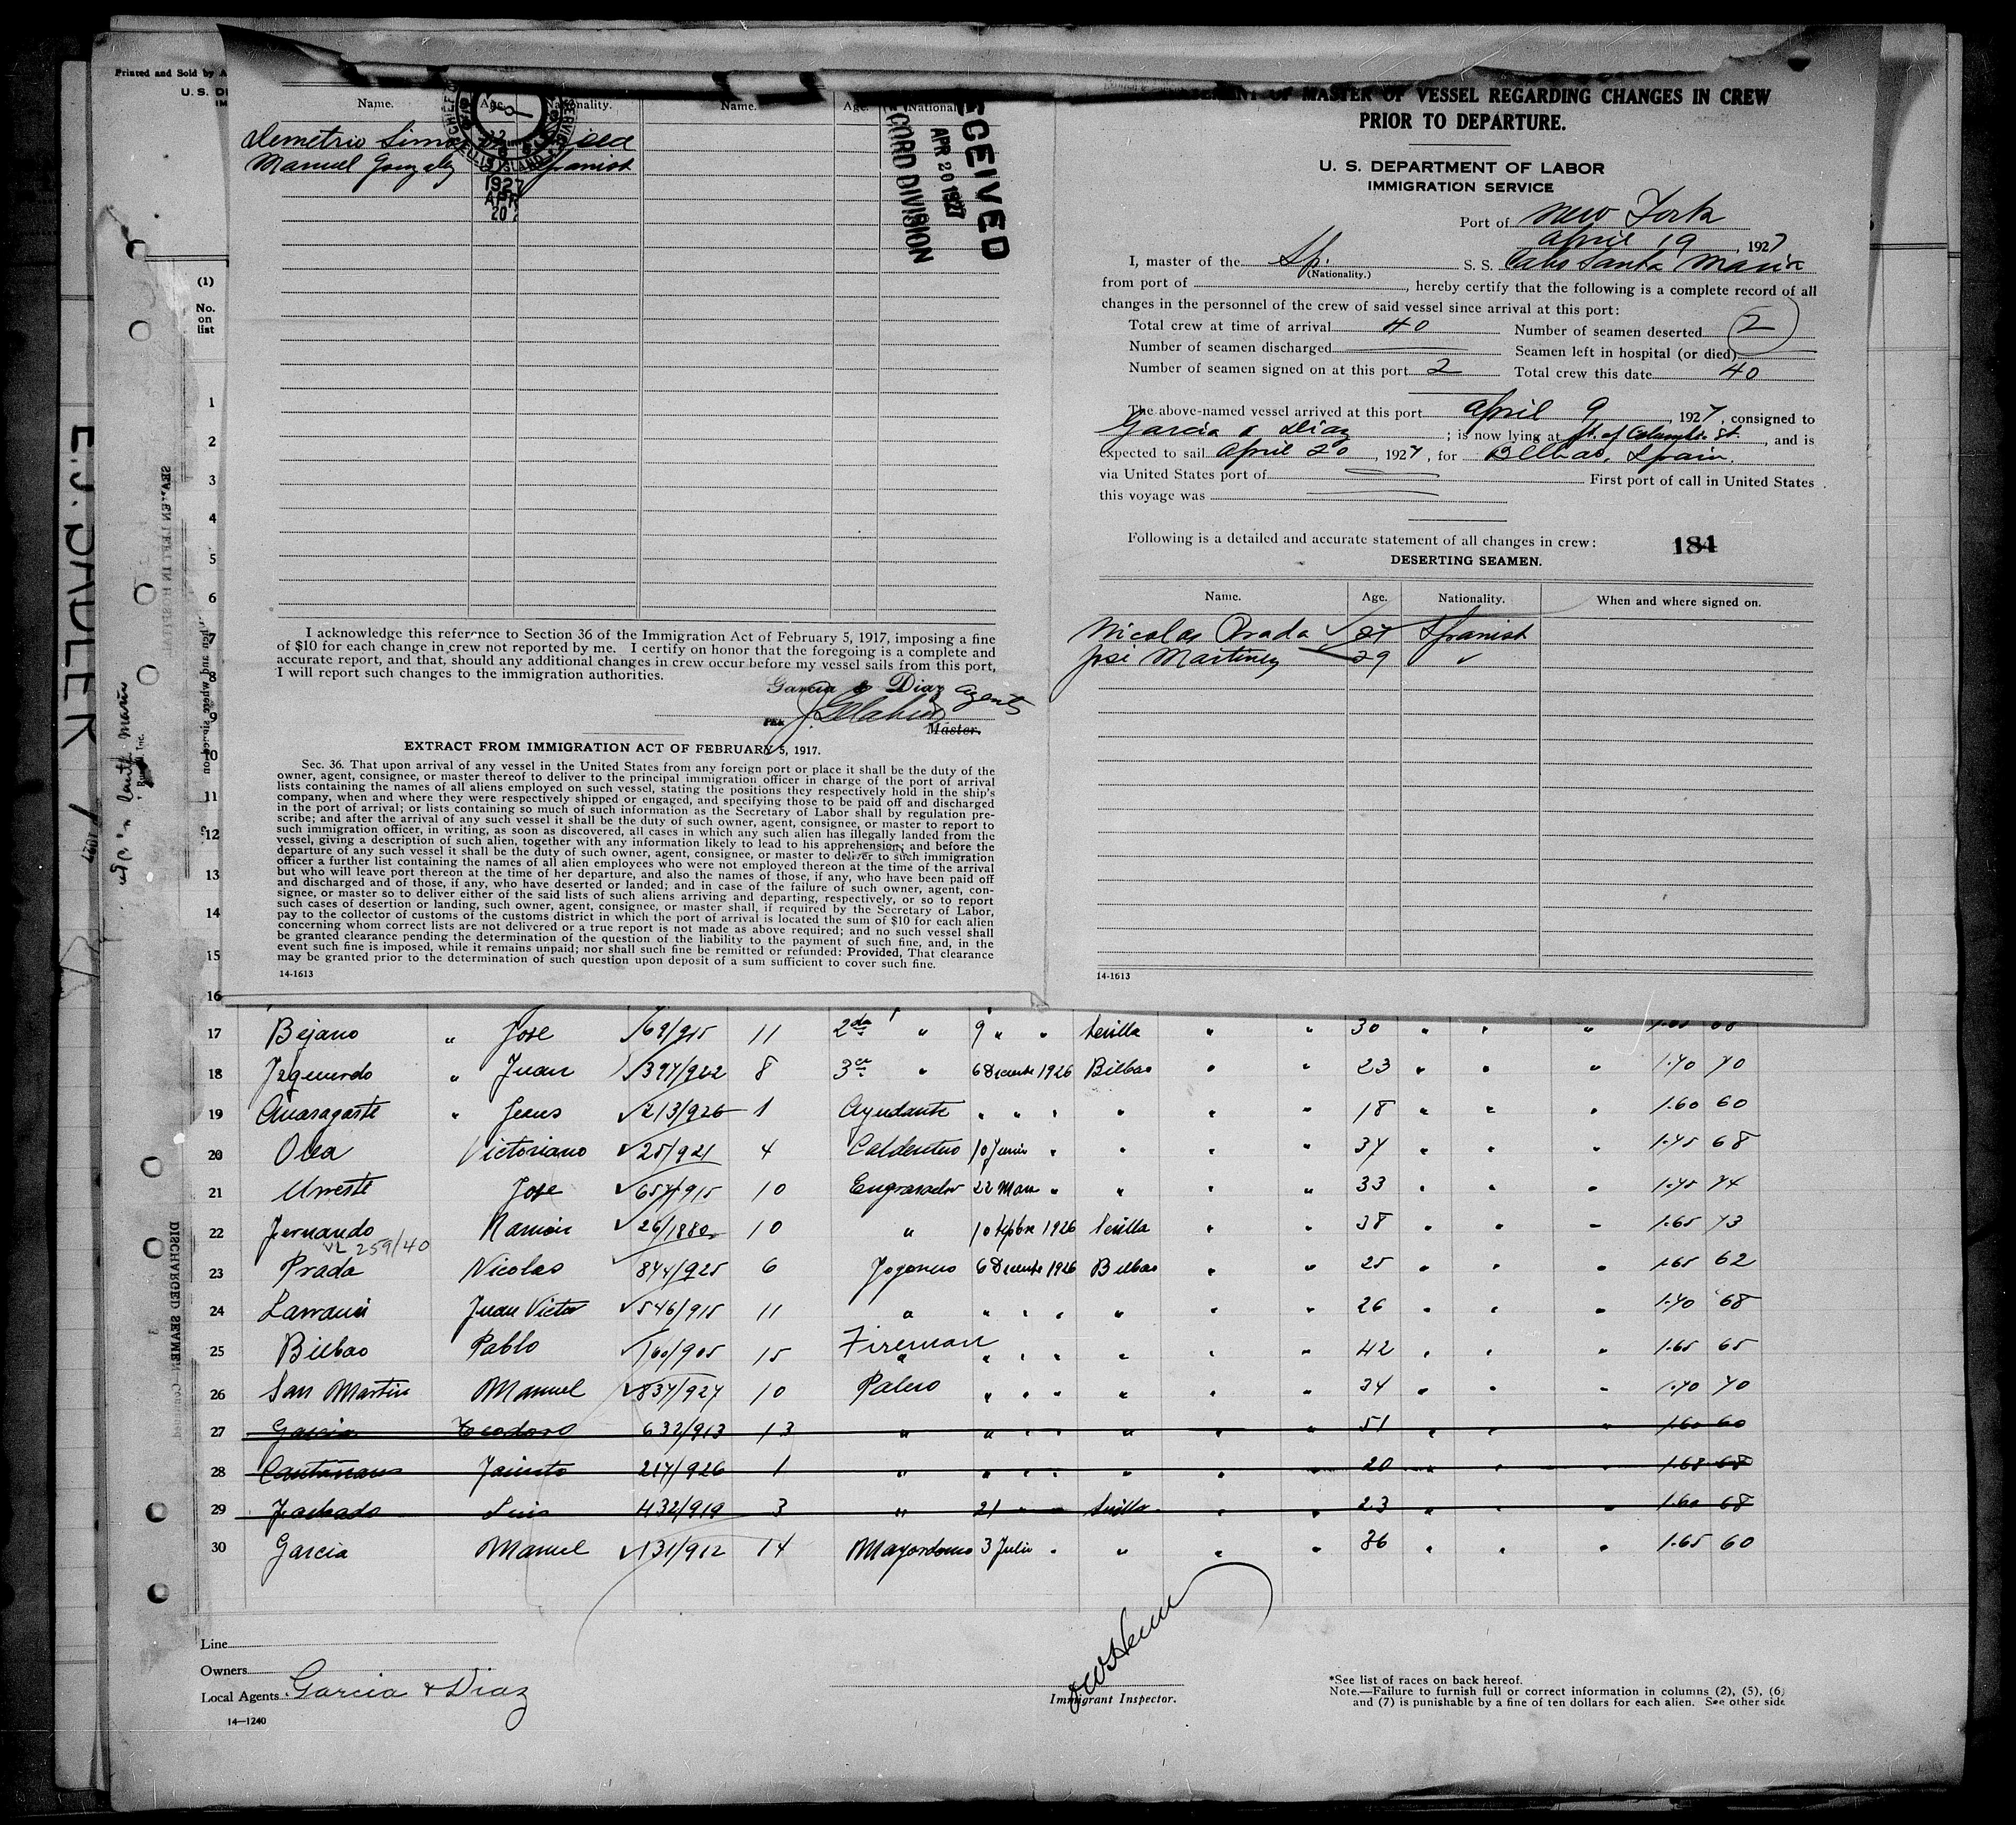 Printed and Sold by A
U. S. DE
IM
(1)
No.
on
list
1
2
3
4
5
6
7
8
9
10
11
12
13
14
15
16
E. J. SADLER
Name. Age. Nationality. Name. Age. National
Demetrio
Manuel Gonzalez Spanish
ELLIS ISLAND
1927
APR
20
RECEIVED
APR 20 1927
RECORD DIVISION
I acknowledge this reference to Section 36 of the Immigration Act of February 5, 1917, imposing a fine
of $10 for each change in crew not reported by me. I certify on honor that the foregoing is a complete and
accurate report, and that, should any additional changes in crew occur before my vessel sails from this port,
I will report such changes to the immigration authorities.
Garcia & Diaz agents
PER
Master.
EXTRACT FROM IMMIGRATION ACT OF FEBRUARY 5, 1917.
Sec. 36. That upon arrival of any vessel in the United States from any foreign port or place it shall be the duty of the
owner, agent, consignee, or master thereof to deliver to the principal immigration officer in charge of the port of arrival
lists containing the names of all aliens employed on such vessel, stating the positions they respectively hold in the ship's
company, when and where they were respectively shipped or engaged, and specifying those to be paid off and discharged
in the port of arrival; or lists containing so much of such information as the Secretary of Labor shall by regulation pre-
scribe; and after the arrival of any such vessel it shall be the duty of such owner, agent, consignee, or master to report to
such immigration officer, in writing, as soon as discovered, all cases in which any such alien has illegally landed from the
vessel, giving a description of such alien, together with any information likely to lead to his apprehension; and before the
departure of any such vessel it shall be the duty of such owner, agent, consignee, or master to deliver to such immigration
officer a further list containing the names of all alien employees who were not employed thereon at the time of the arrival
but who will leave port thereon at the time of her departure, and also the names of those, if any, who have been paid off
and discharged and of those, if any, who have deserted or landed; and in case of the failure of such owner, agent, con-
signee, or master so to deliver either of the said lists of such aliens arriving and departing, respectively, or so to report
such cases of desertion or landing, such owner, agent, consignee, or master shall, if required by the Secretary of Labor,
pay to the collector of customs of the customs district in which the port of arrival is located the sum of $10 for each alien
concerning whom correct lists are not delivered or a true report is not made as above required; and no such vessel shall
be granted clearance pending the determination of the question of the liability to the payment of such fine, and, in the
event such fine is imposed, while it remains unpaid; nor shall such fine be remitted or refunded: Provided, That clearance
may be granted prior to the determination of such question upon deposit of a sum sufficient to cover such fine.
14-1613
OF MASTER OF VESSEL REGARDING CHANGES IN CREW
PRIOR TO DEPARTURE.
U. S. DEPARTMENT OF LABOR
IMMIGRATION SERVICE
Port of New York
April 19, 1927
I, master of the Sp. S. S. Cabo Santa Maria
(Nationality.)
from port of , hereby certify that the following is a complete record of all
changes in the personnel of the crew of said vessel since arrival at this port:
Total crew at time of arrival 40 Number of seamen deserted 2
Number of seamen discharged Seamen left in hospital (or died)
Number of seamen signed on at this port 2 Total crew this date 40
The above-named vessel arrived at this port April 9, 1927, consigned to
Garcia & Diaz ; is now lying at ft. of Columbia St. , and is
expected to sail April 20, 1927, for Bilbao, Spain.
via United States port of First port of call in United States
this voyage was
Following is a detailed and accurate statement of all changes in crew: 184
DESERTING SEAMEN.
Name. Age. Nationality. When and where signed on.
Nicolas Prada 27 Spanish
José Martinez 29 ✓
14-1613
17 Bejano " Jose ✓69/915 11 2do " 9 " " Sevilla " " 30 " " "
18 Izquierdo " Juan ✓397/922 8 3er " 6 Dicembre 1926 Bilbao " " 23 " " " 1.70 70
19 " Jesus ✓213/926 1 Ayudante " " " " " " 18 " " " 1.60 60
20 Olea Victoriano ✓25/921 4 Calderero 10 Junio " " " " 37 " " " 1.75 68
21 Urreste Jose ✓657/915 10 Engrasador 22 Marz " " " " 33 " " " 1.75 74
22 Fernando Ramon ✓26/1880 10 " 1 Octpbre 1926 Sevilla " " 38 " " " 1.65 73
VL 259/40
23 Prada Nicolas 844/925 6 Fogonero 6 Dicembre 1926 Bilbao " " 25 " " " 1.65 62
24 Larrauri Juan Victor ✓546/915 11 " " " " " " " 26 " " " 1.70 68
25 Bilbao Pablo ✓160/905 15 Fireman " " " " " " 42 " " " 1.65 65
26 San Martin Manuel ✓837/927 10 Palero " " " " " " 34 " " " 1.70 70
27 Garcia Teodoro 632/913 13 " " " " " " " 51 " " " 1.60 60
28 Jacinto 217/926 1 " " " " " " " 20 " " " 1.68 68
29 Luis 432/919 3 " 21 " " Sevilla " " 23 " " " 1.60 68
30 Garcia Manuel ✓131/912 14 Mayordomo 3 Julio " " " " 36 " " " 1.65 60
DISCHARGED SEAMEN—Continued.
Line
Owners
Local Agents Garcia & Diaz
14—1240
Immigrant Inspector.
*See list of races on back hereof.
Note.—Failure to furnish full or correct information in columns (2), (5), (6)
and (7) is punishable by a fine of ten dollars for each alien. See other side